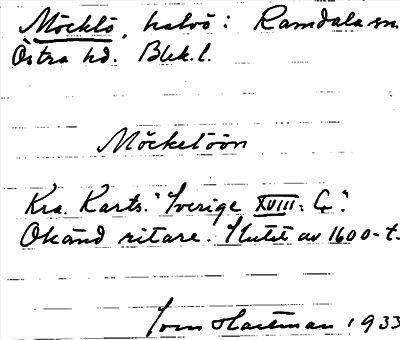 Möcklö, halvö: Ramdala sn.
Östra hd. Blek. l.
Möcketöön
Kra. Karts. "Sverige XVIII: C".
Okänd ritare. Slutet av 1600-t.
Hartman 1933